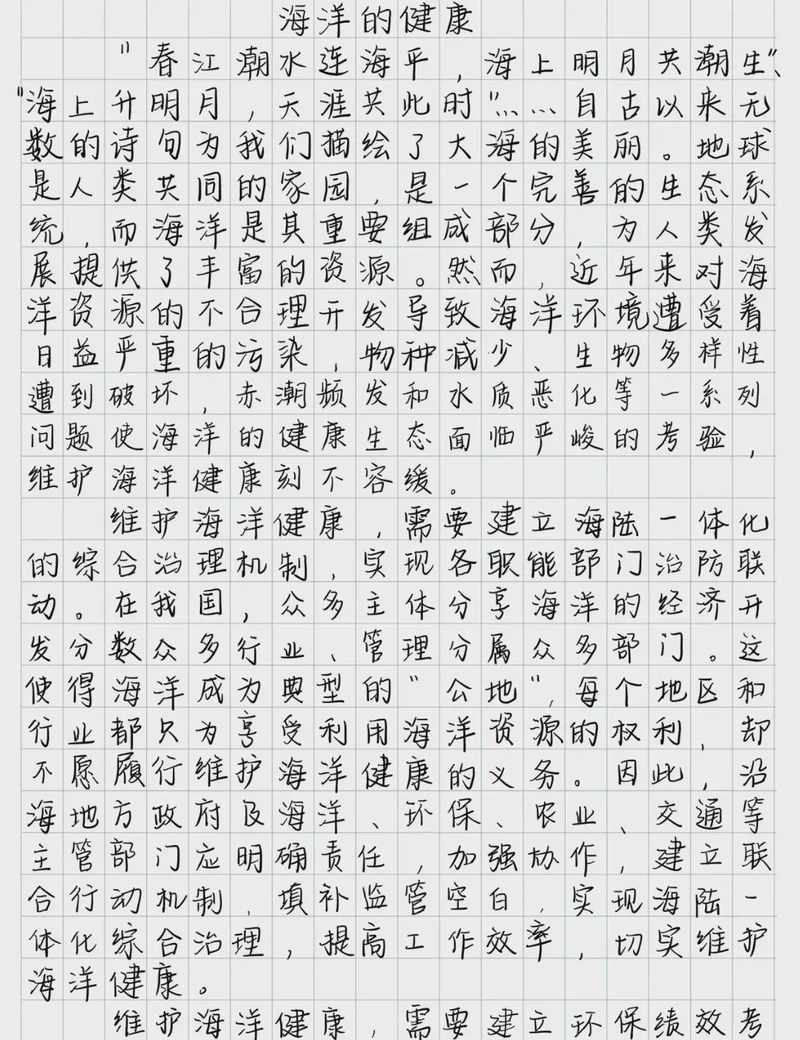 海洋的健康
"春江潮水连海平，海上明月共潮生"、
"海上升明月，天涯共此时"……自古以来无
数的诗句为我们描绘了大海的美丽。地球
是人类共同的家园，是一个完善的生态系
统，而海洋是其重要组成部分，为人类发
展提供了丰富的资源。然而，近年来对海
洋资源的不合理开发导致海洋环境遭受着
日益严重的污染，物种减少、生物多样性
遭到破坏，赤潮频发和水质恶化等一系列
问题使海洋的健康生态面临严峻的考验，
维护海洋健康刻不容缓。
维护海洋健康，需要建立海陆一体化
的综合治理机制，实现各职能部门治防联
动。在我国，众多主体分享海洋的经济开
发分数众多行业、管理分属众多部门。这
使得海洋成为典型的"公地"，每个地区和
行业都只为享受利用海洋资源的权利，却
不愿履行维护海洋健康的义务。因此，沿
海地方政府及海洋、环保、农业、交通等
主管部门应明确责任，加强协作，建立联
合行动机制，填补监管空白，实现海陆一
体化综合治理，提高工作效率，切实维护
海洋健康。
维护海洋健康，需要建立环保绩效考